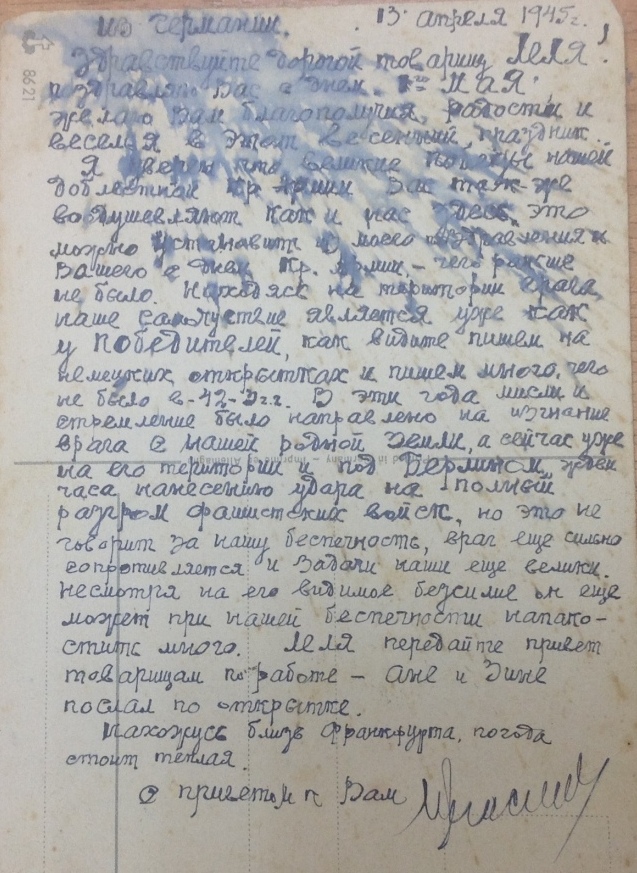 из Германии. 13 апреля 1945г.
8621
Здравствуйте дорогой товарищ Леля!
поздравляю Вас с днем 1го мая,
желаю Вам благополучия, радости и
веселья в этот весенний праздник.
Я уверен что великие победы нашей
доблестной Кр. Армии Вас так-же
воодушевляют как и нас здесь, это
можно установить из моего поздравления и
Вашего с днем Кр. Армии, - чего раньше
не было. Находясь на територии врага,
наше является уже как
у победителей, как видите пишем на
немецких открытках и пишем много, чего
не было в -42-3г.г. В эти года мысли и
стремление было направлено на изгнание
врага с нашей родной земли, а сейчас уже
на его територии и под Берлином, ждем
часа нанесению удара на полный
разгром фашистских войск, но это не
говорит за нашу беспечность, враг еще сильно
сопротивляется и задачи наши еще велики.
Несмотря на его видимое безсилие он еще
может при нашей беспечности напако-
стить много. Леля передайте привет
товарищам по работе - Ане и Зине
послал по открытке.
Нахожусь близ Франкфурта, погода
стоит теплая.
С приветом к Вам